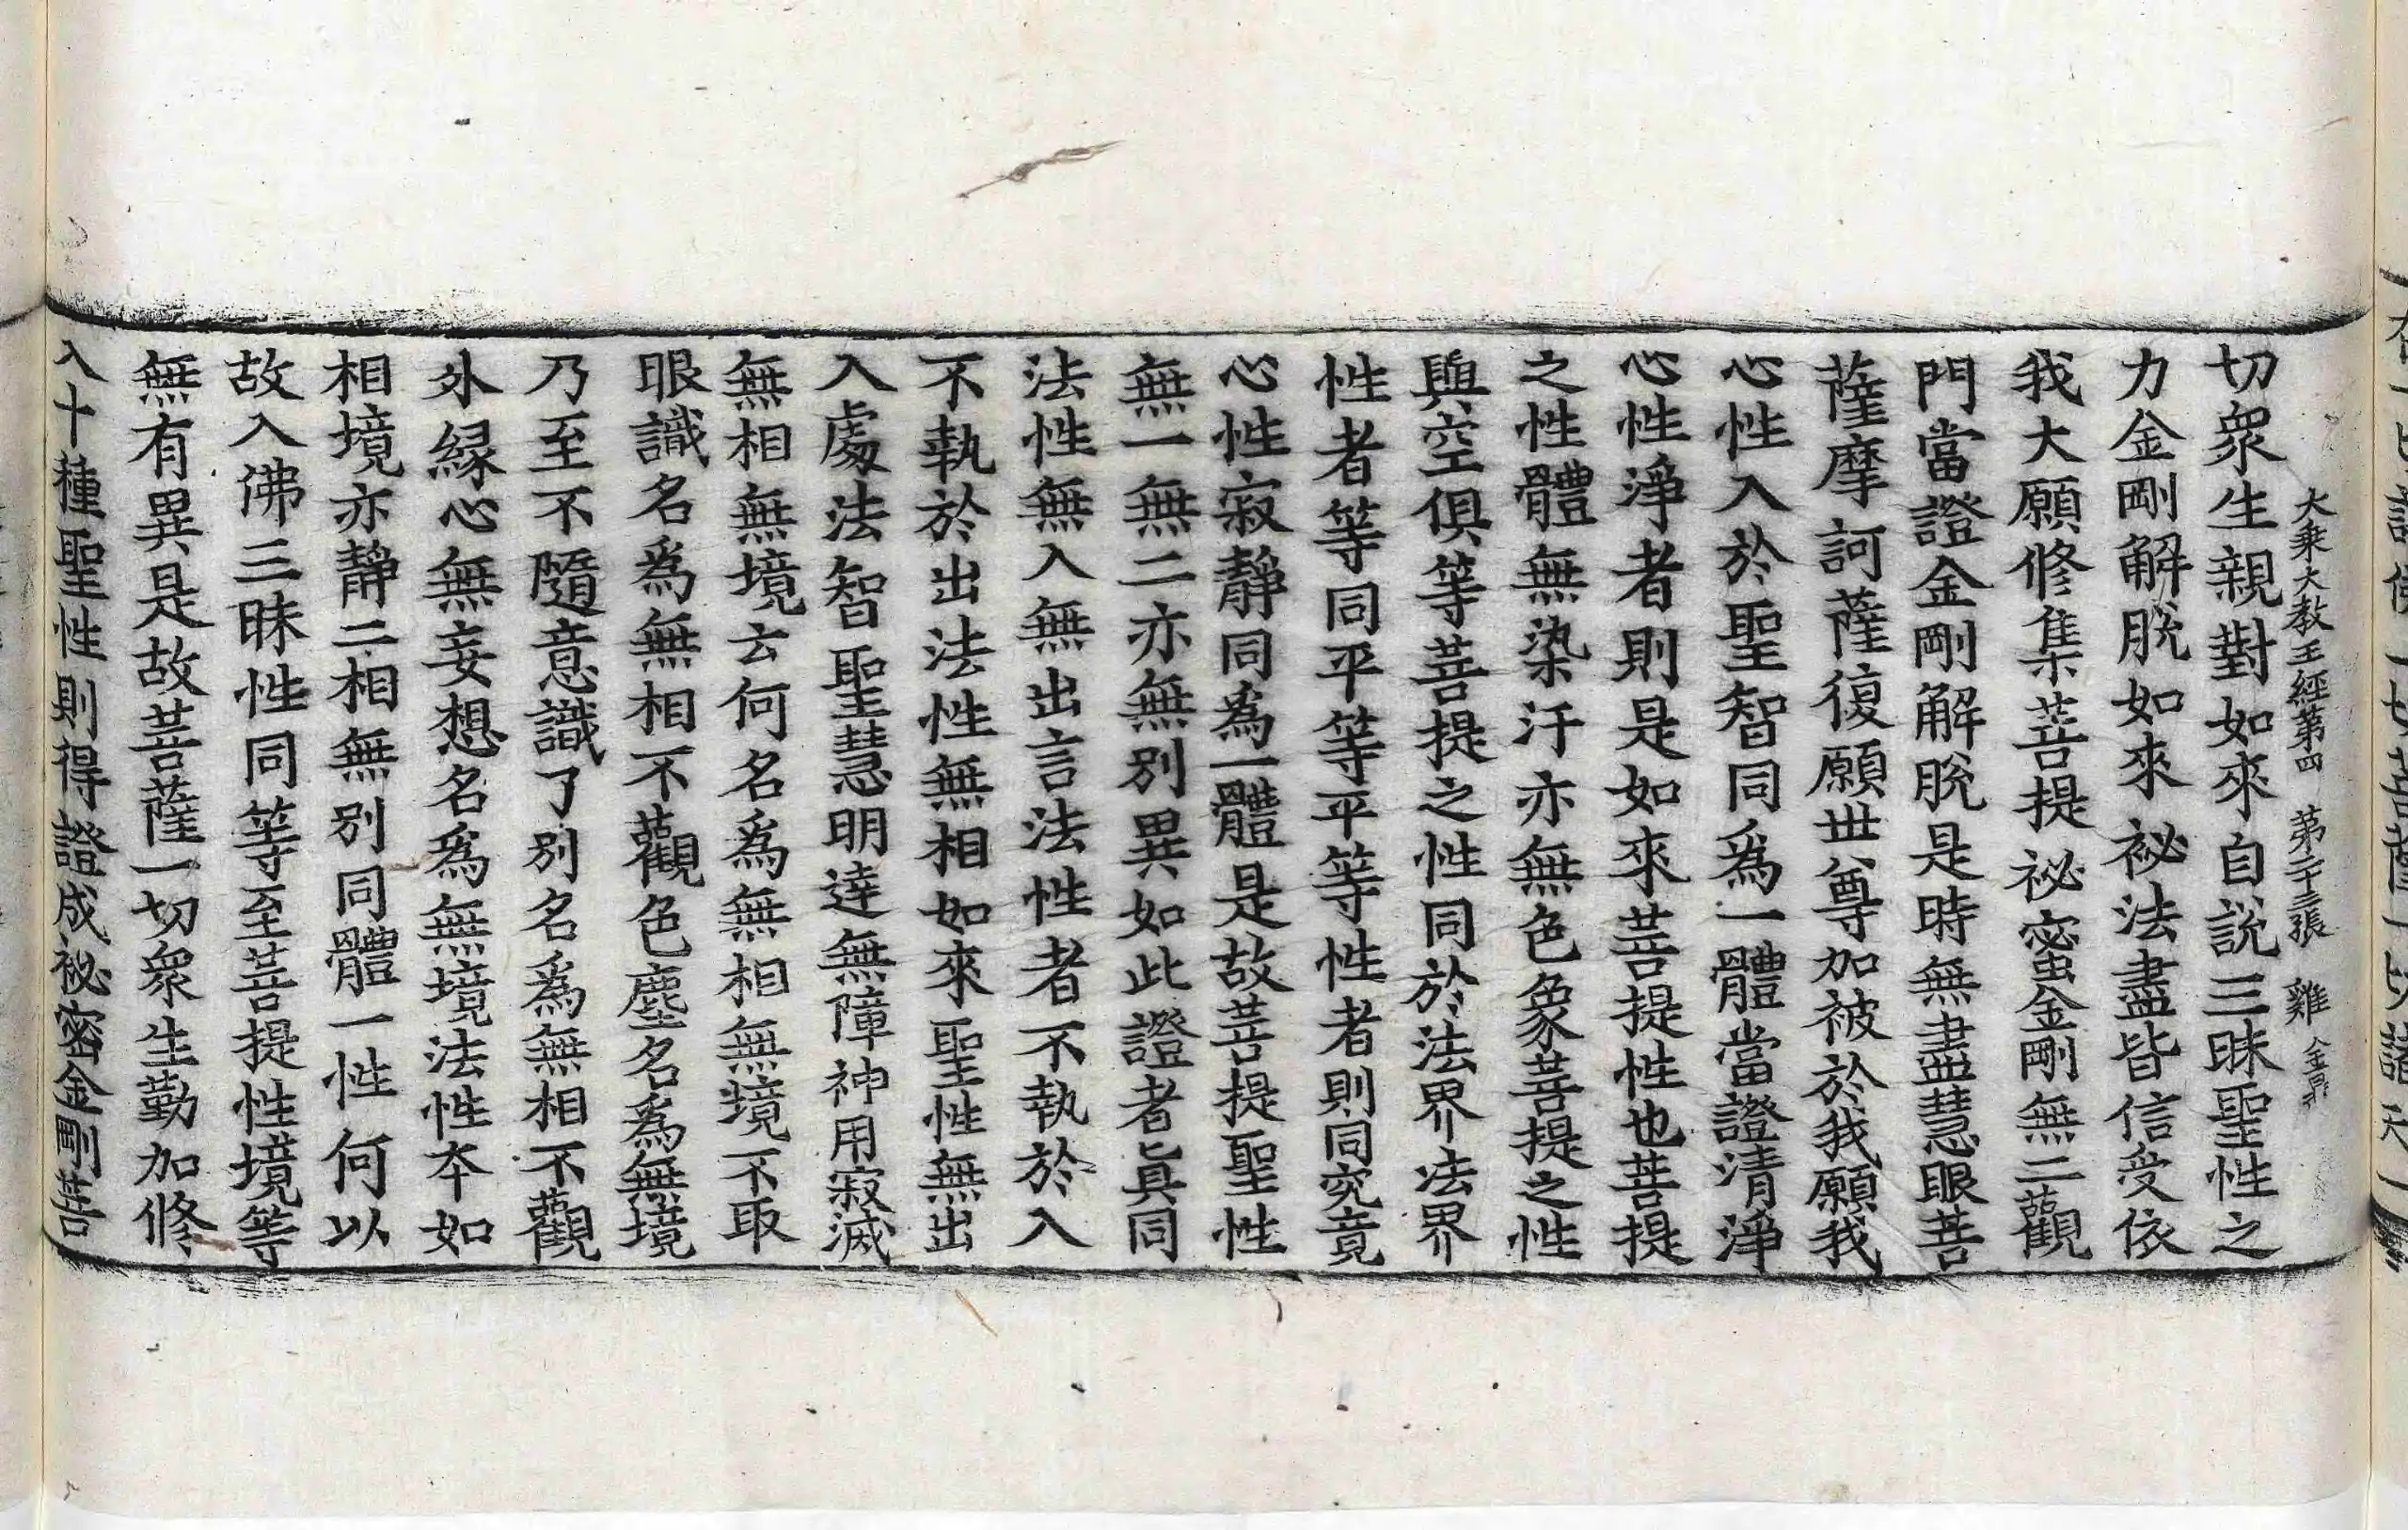 大乗大教王經第四　第二十三張　雞　金昇
切衆生親對如來自説三昧聖性之
力金剛解脫如來祕法盡皆信受依
我大願修集菩提祕蜜金剛無二觀
門當證金剛解脫是時無盡慧眼菩
薩摩訶薩復願世尊加被於我願我
心性入於聖智同爲一體當證清淨
心性淨者則是如來菩提性也菩提
之性體無染汙亦無色象菩提之性
與空俱等菩提之性同於法界法界
性者等同平等平等性者則同究竟
心性寂靜同爲一體是故菩提聖性
無一無二亦無別異如此證者眞同
法性無入無出言法性者不執於入
不執於出法性無相如來聖性無出
入處法智聖慧明達無障神用寂滅
無相無境云何名爲無相無境不取
眼識名爲無相不觀色塵名爲無境
乃至不隨意識了別名爲無相不觀
外緣心無妄想名爲無境法性本如
相境亦靜二相無別同體一性何以
故入佛三昧性同等至菩提性境等
無有異是故菩薩一切衆生勤加修
入十種聖性則得證成祕密金剛菩